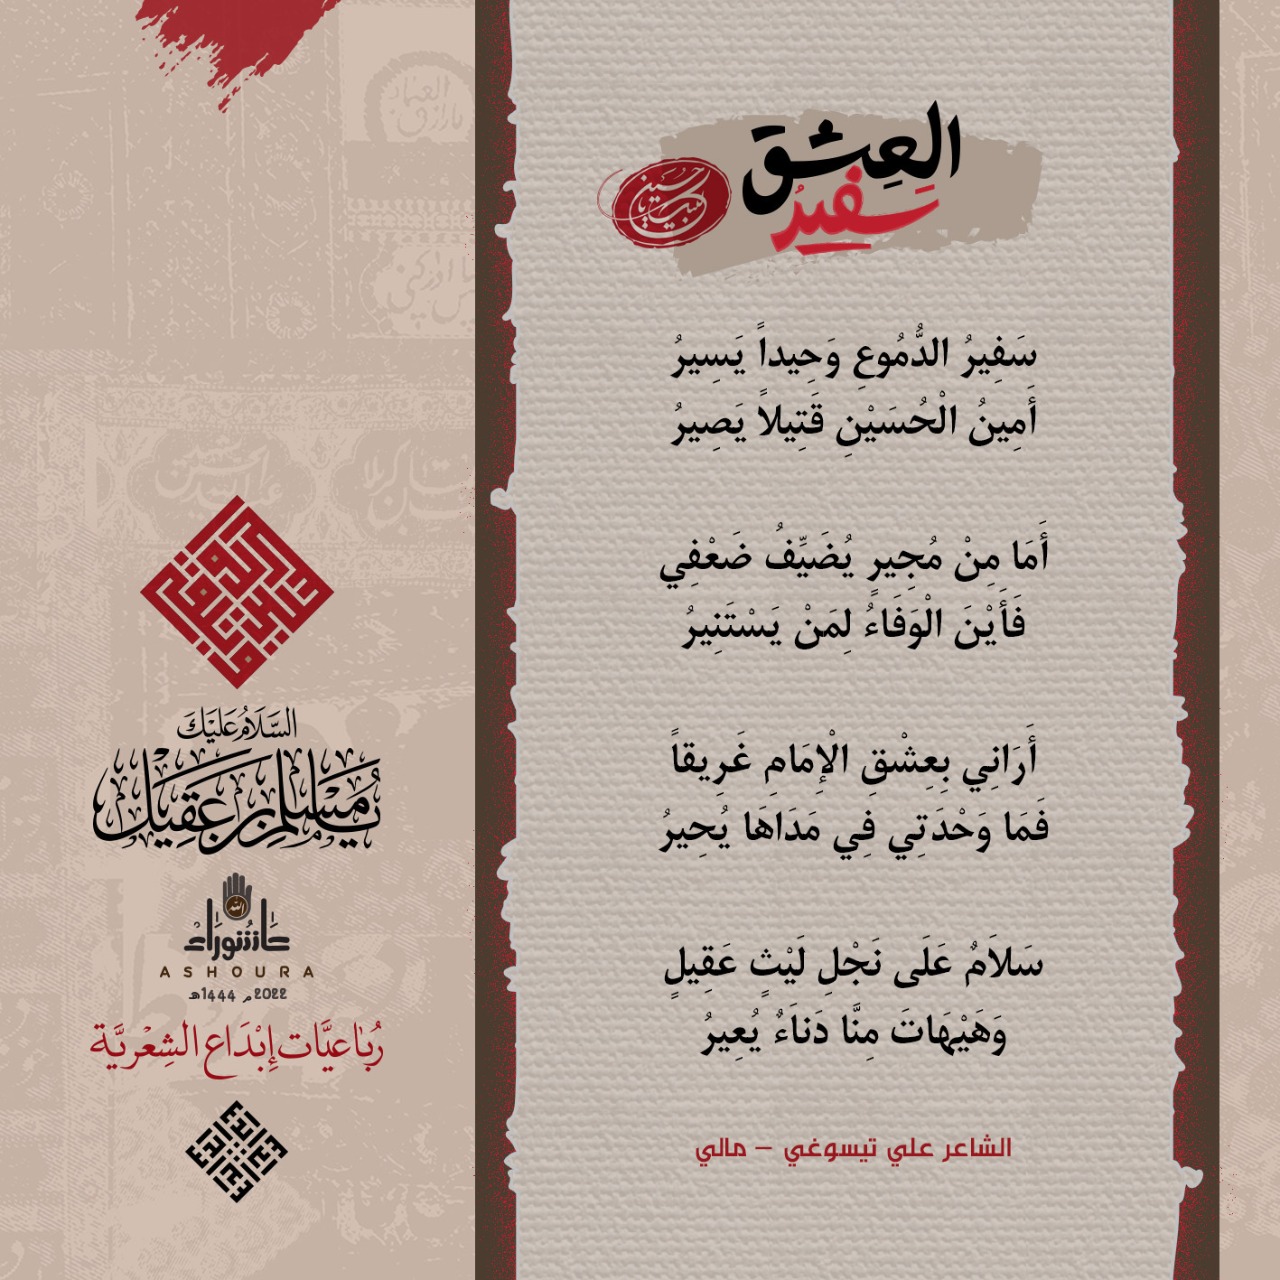 سفيرُ
العِشق
لبيك يا حسين
سَفِيرُ الدُّمُوعِ وَحِيداً يَسِيرُ
أَمِينُ الْحُسَيْنِ قَتِيلاً يَصِيرُ
أَمَا مِنْ مُجِيرٍ يُضَيِّفُ ضَعْفِي
فَأَيْنَ الْوَفَاءُ لِمَنْ يَسْتَنِيرُ
أَرَانِي بِعِشْقِ الْإِمَامِ غَرِيقاً
فَمَا وَحْدَتِي فِي مَدَاهَا يُحِيرُ
سَلاَمٌ عَلَى نَجْلِ لَيْثٍ عَقِيلٍ
وَهَيْهَاتَ مِنَّا دَناَءٌ يُعِيرُ
الشاعر علي تيسوغي – مالي
السَّلَامُ عَلَيْكَ
يَا مُسْلِمَ بْنَ عَقِيْل
الله
عاشوراء
ASHOURA
2022م 1444هـ
رُبَاعيَّات إِبْدَاع الشِعْريَّة